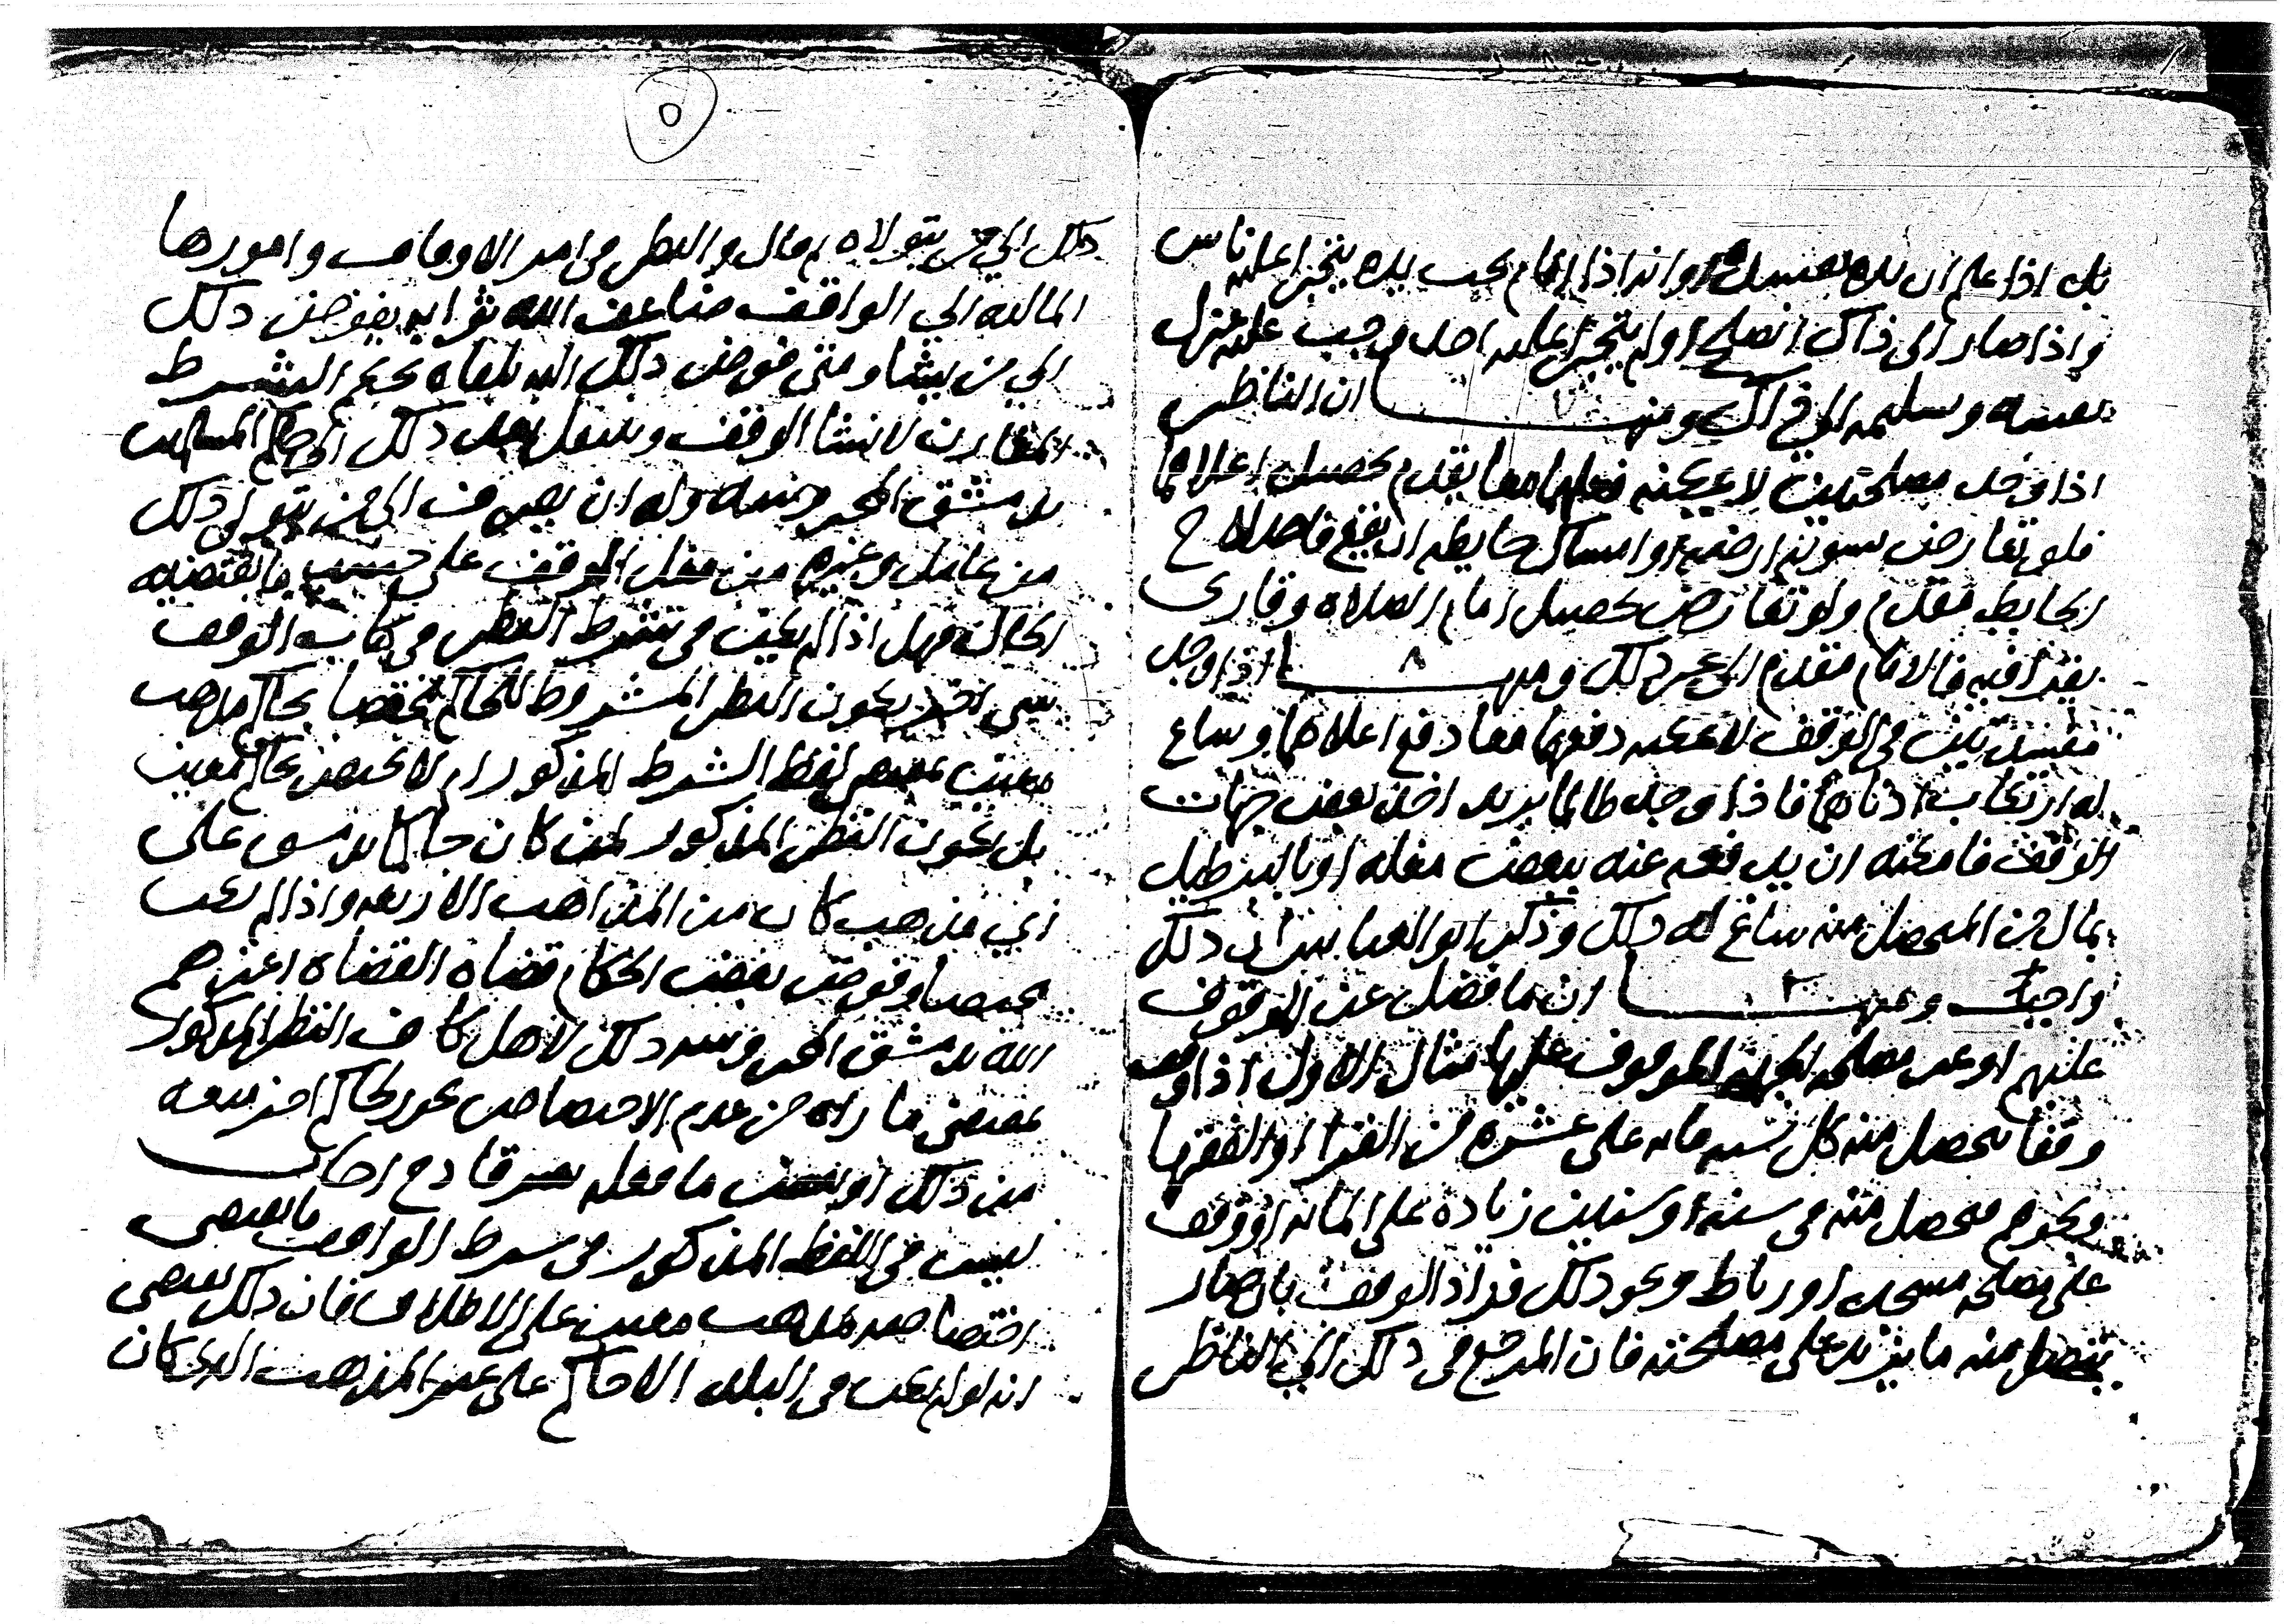 بل اذا علم ان يده مفسدة وانه اذا اقام بحب يده يتجرا عليه ناس
واذا صار الى ذاك انصلح او لم يتجرا عليه احد وجب عليه عزل
نفسه وتسليمه الى ذاك ومنها ان الناظر
اذا وجد مصلحتين لا يمكنه فعلهما معا يقدم تحصيل اعلاهما
فلو تعارض تسوية ارضه او امساك حايطه ان يقع فاصلاح
الحايط مقدم ولو تعارض تحصيل امام الصلاه وقارى
يقرا فيه فالامام مقدم الى غير ذلك ومنها ٨ اذا وجد
مفسدتين في الوقف لا يمكنه دفعهما معا دفع اعلاهما وساغ
له ارتكاب ادناهما فاذا وجد ظالما يريد اخذ بعض جهات
الوقف فامكنه ان يدفعه عنه ببعض مغله او بالبرطيل
بمال من المتحصل منه ساغ له ذلك وذكر ابو العباس ان ذلك
واجب ومنها ان ما فضل عن الموقوف
عليهم او عن مصلحه الجهه الموقوف عليها مثال الاول اذا وقف
وقفا يتحصل منه كل سنه مايه على عشره من القرا او الفقها
ونحوهم فتحصل منه في سنه او سنتين زيادة على المايه او وقف
على مصلحه مسجد او رباط ونحو ذلك فزاد الوقف بان صار
يتحصل منه ما يزيد على مصلحته فان المرجع في ذلك الي الناظر
٥
ذلك الي من يتولاه قال والنظر في امر الاوقاف وامورها
الماليه الي الواقف ضاعف الله ثوابه يفوض ذلك
الي من يشا ومتى فوض ذلك اليه تلقاه بحكم الشرط
المقارن لانشا الوقف وينتقل بعد ذلك الى حاكم المسلمين
بدمشق المحروسه وله ان يصرف الى من يتولى ذلك
من عامل وغيره من مغل الوقف على حسب ما يقتضيه
الحال فهل اذا لم يعين في شرط النظر في كتاب الوقف
شي اخر يكون النظر المشروط للحاكم مختصا بحاكم مذهب
معين بمقتضى لفظ الشرط المذكور ام لا يختص بحاكم معين
بل يكون النظر المذكور لمن كان حاكما بدمشق على
اي مذهب كان من المذاهب الاربعه واذا لم يكن
مختصا وفوض بعض الحكام قضاه القضاه اعزهم
الله بدمشق المحروسه ذلك لاهل كان النظر المذكور
بمقتضى ما راه من عدم الاختصاص يجوز لحاكم اخر منعه
من ذلك او بعض ما فعله بغير قادح اجاب
ليس في اللفظ المذكور في شرط الواقف ما يقتضى
اختصاصه بمذهب معين على الاطلاق فان ذلك يقتضى
انه لو لم يكن في البلد الا حاكم على غير المذهب الذي كان